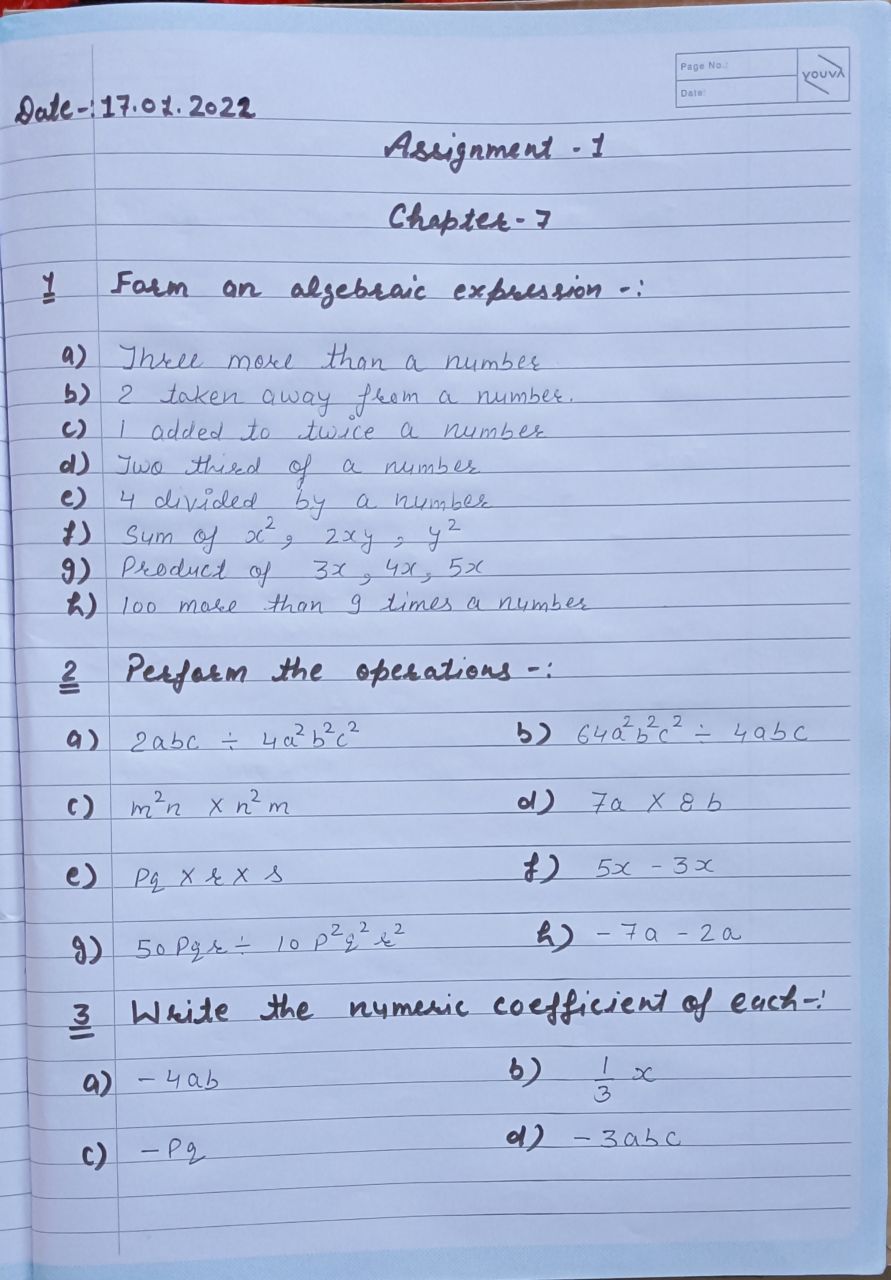 Page No.:
youva
Date:
Date-: 17.01.2022
Assignment - 1
Chapter - 7
1 Form an algebraic expression -:
a) Three more than a number
b) 2 taken away from a number.
c) 1 added to twice a number
d) Two third of a number
e) 4 divided by a number
f) Sum of x², 2xy, y²
g) Product of 3x, 4x, 5x
h) 100 more than 9 times a number
2 Perform the operations -:
a) 2abc ÷ 4a²b²c² b) 64a²b²c² ÷ 4abc
c) m²n × n²m d) 7a × 8b
e) pq × r × s f) 5x - 3x
g) 50pqr ÷ 10p²q²r² h) -7a - 2a
3 Write the numeric coefficient of each -:
a) -4ab b) 1/3 x
c) -pq d) -3abc